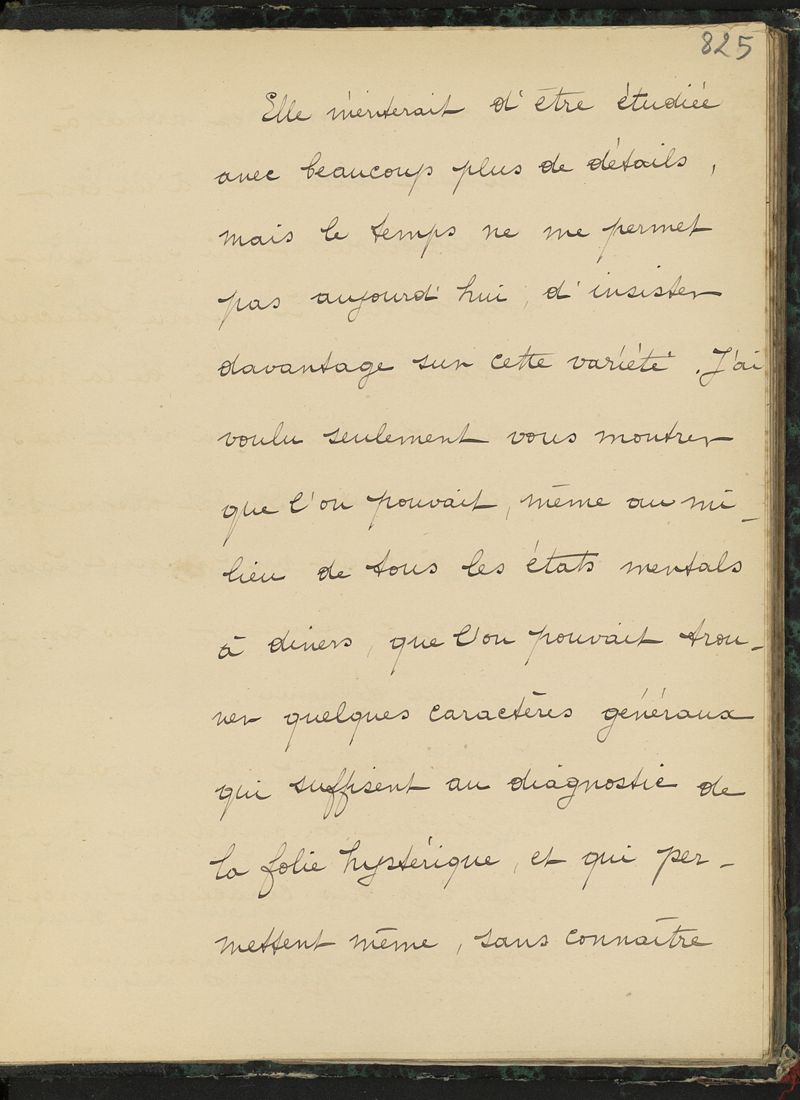 825
Elle mériterait d'être étudiée
avec beaucoup plus de détails,
mais le temps ne me permet
pas aujourd'hui, d'insister
davantage sur cette variété. J'ai
voulu seulement vous montrer
que l'on pouvait, même au mi-
lieu de tous les états mentals
à divers, que l'on pouvait trou-
ver quelques caractères généraux
qui suffisent au diagnostic de
la folie hystérique, et qui per-
mettent même, sans connaître